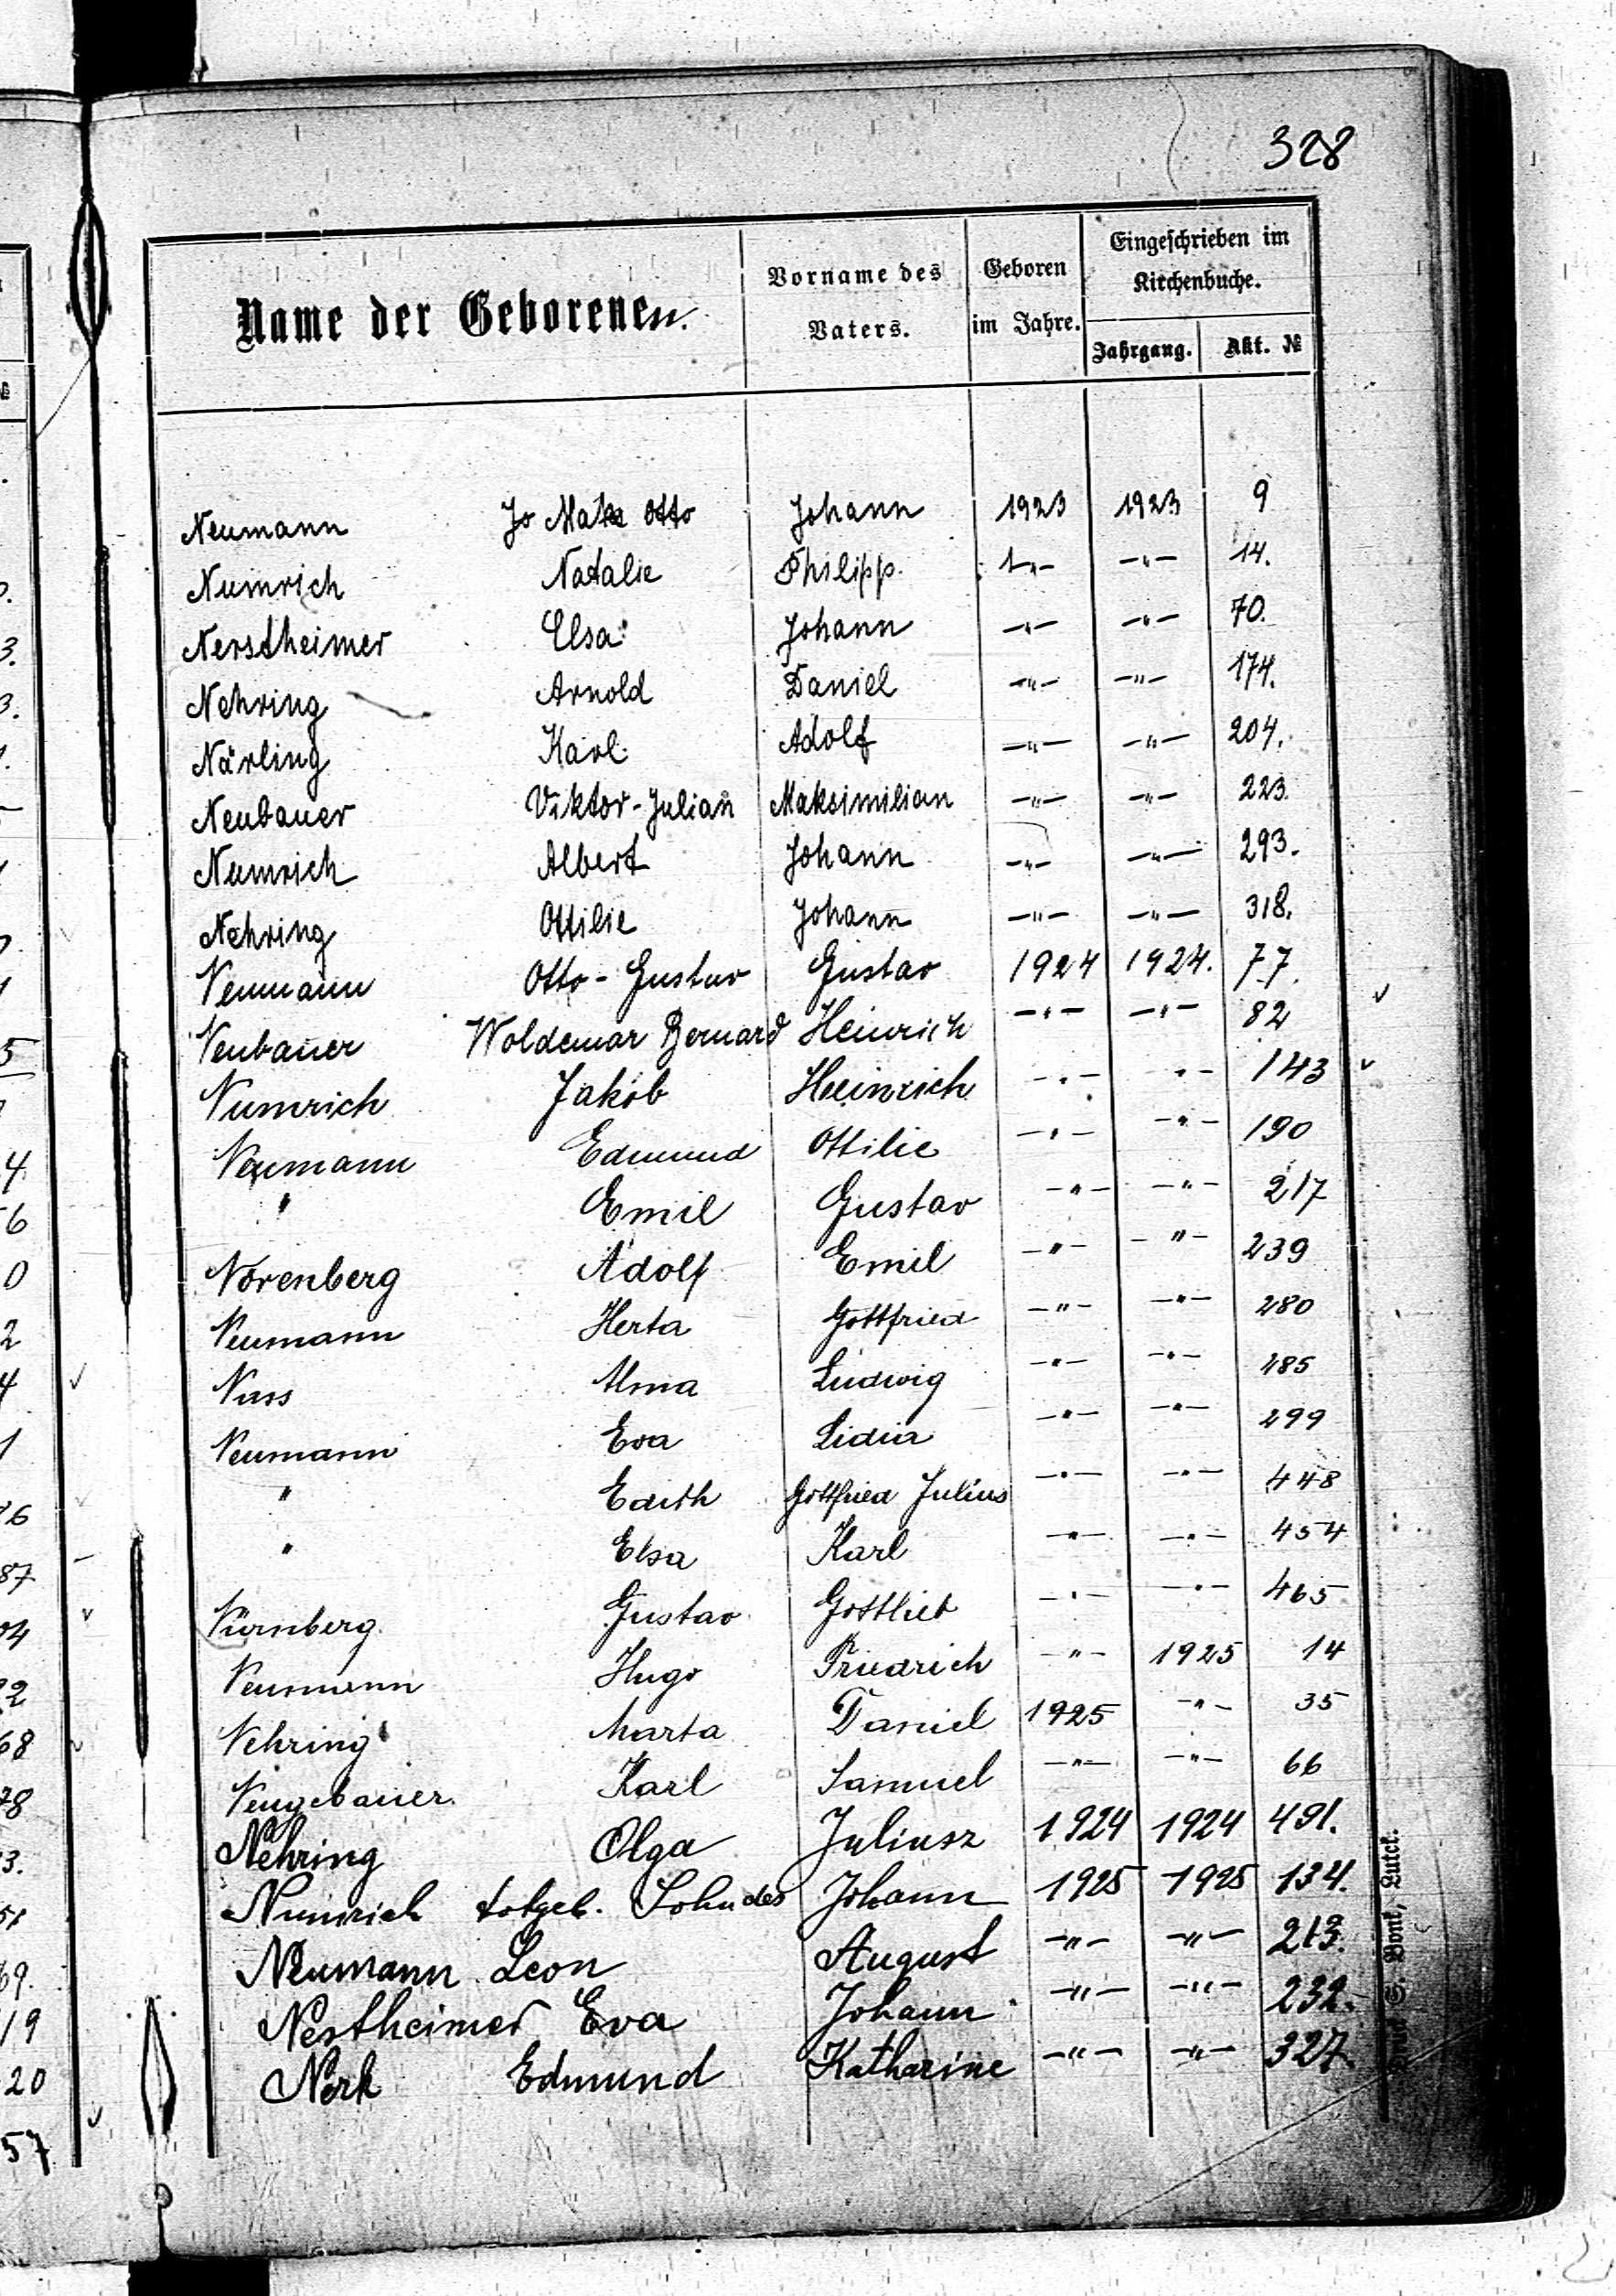 328
Name der Geborenen.
Vorname des Vaters.
Geboren im Jahre.
Eingeschrieben im Kirchenbuche.
Jahrgang. Akt. №
Neumann Otto Johann 1923 1923 9
Numrich Natalie Philipp. 1-"- -"- 14.
Nerstheimer Elsa Johann -"- -"- 70.
Nehring Arnold Daniel -"- -"- 174.
Närling Karl Adolf -"- -"- 204.
Neubauer Viktor-Julian Maksimilian -"- -"- 223.
Numrich Albert Johann -"- -"- 293.
Nehring Ottilie Johann -"- -"- 318.
Neumann Otto-Gustav Gustav 1924 1924. 77.
Neubauer Woldemar Bernard Heinrich -"- -"- 82
Numrich Jakob Heinrich -"- -"- 143
Neumann Edmund Ottilie -"- -"- 190
" Emil Gustav -"- -"- 217
Norenberg Adolf Emil -"- -"- 239
Neumann Herta Gottfried -"- -"- 280
Nass Alma Ludwig -"- -"- 285
Neumann Eva Lidia -"- -"- 299
" Edith Gottfried Julius -"- -"- 448
" Elsa Karl -"- -"- 454
Nürnberg. Gustav Gottlieb -"- -"- 465
Neumann Hugo Friedrich -"- 1925 14
Nehring Marta Daniel 1925 -"- 35
Neugebauer. Karl Samuel -"- -"- 66
Nehring Olga Juliusz 1924 1924 491.
Numrich totgeb. Sohn des Johann 1925 1925 134.
Neumann Leon August -"- -"- 213.
Nestheimer Eva Johann -"- -"- 232.
Nerk Edmund Katharine -"- -"- 327.
Druck S. Bont, Luzk.